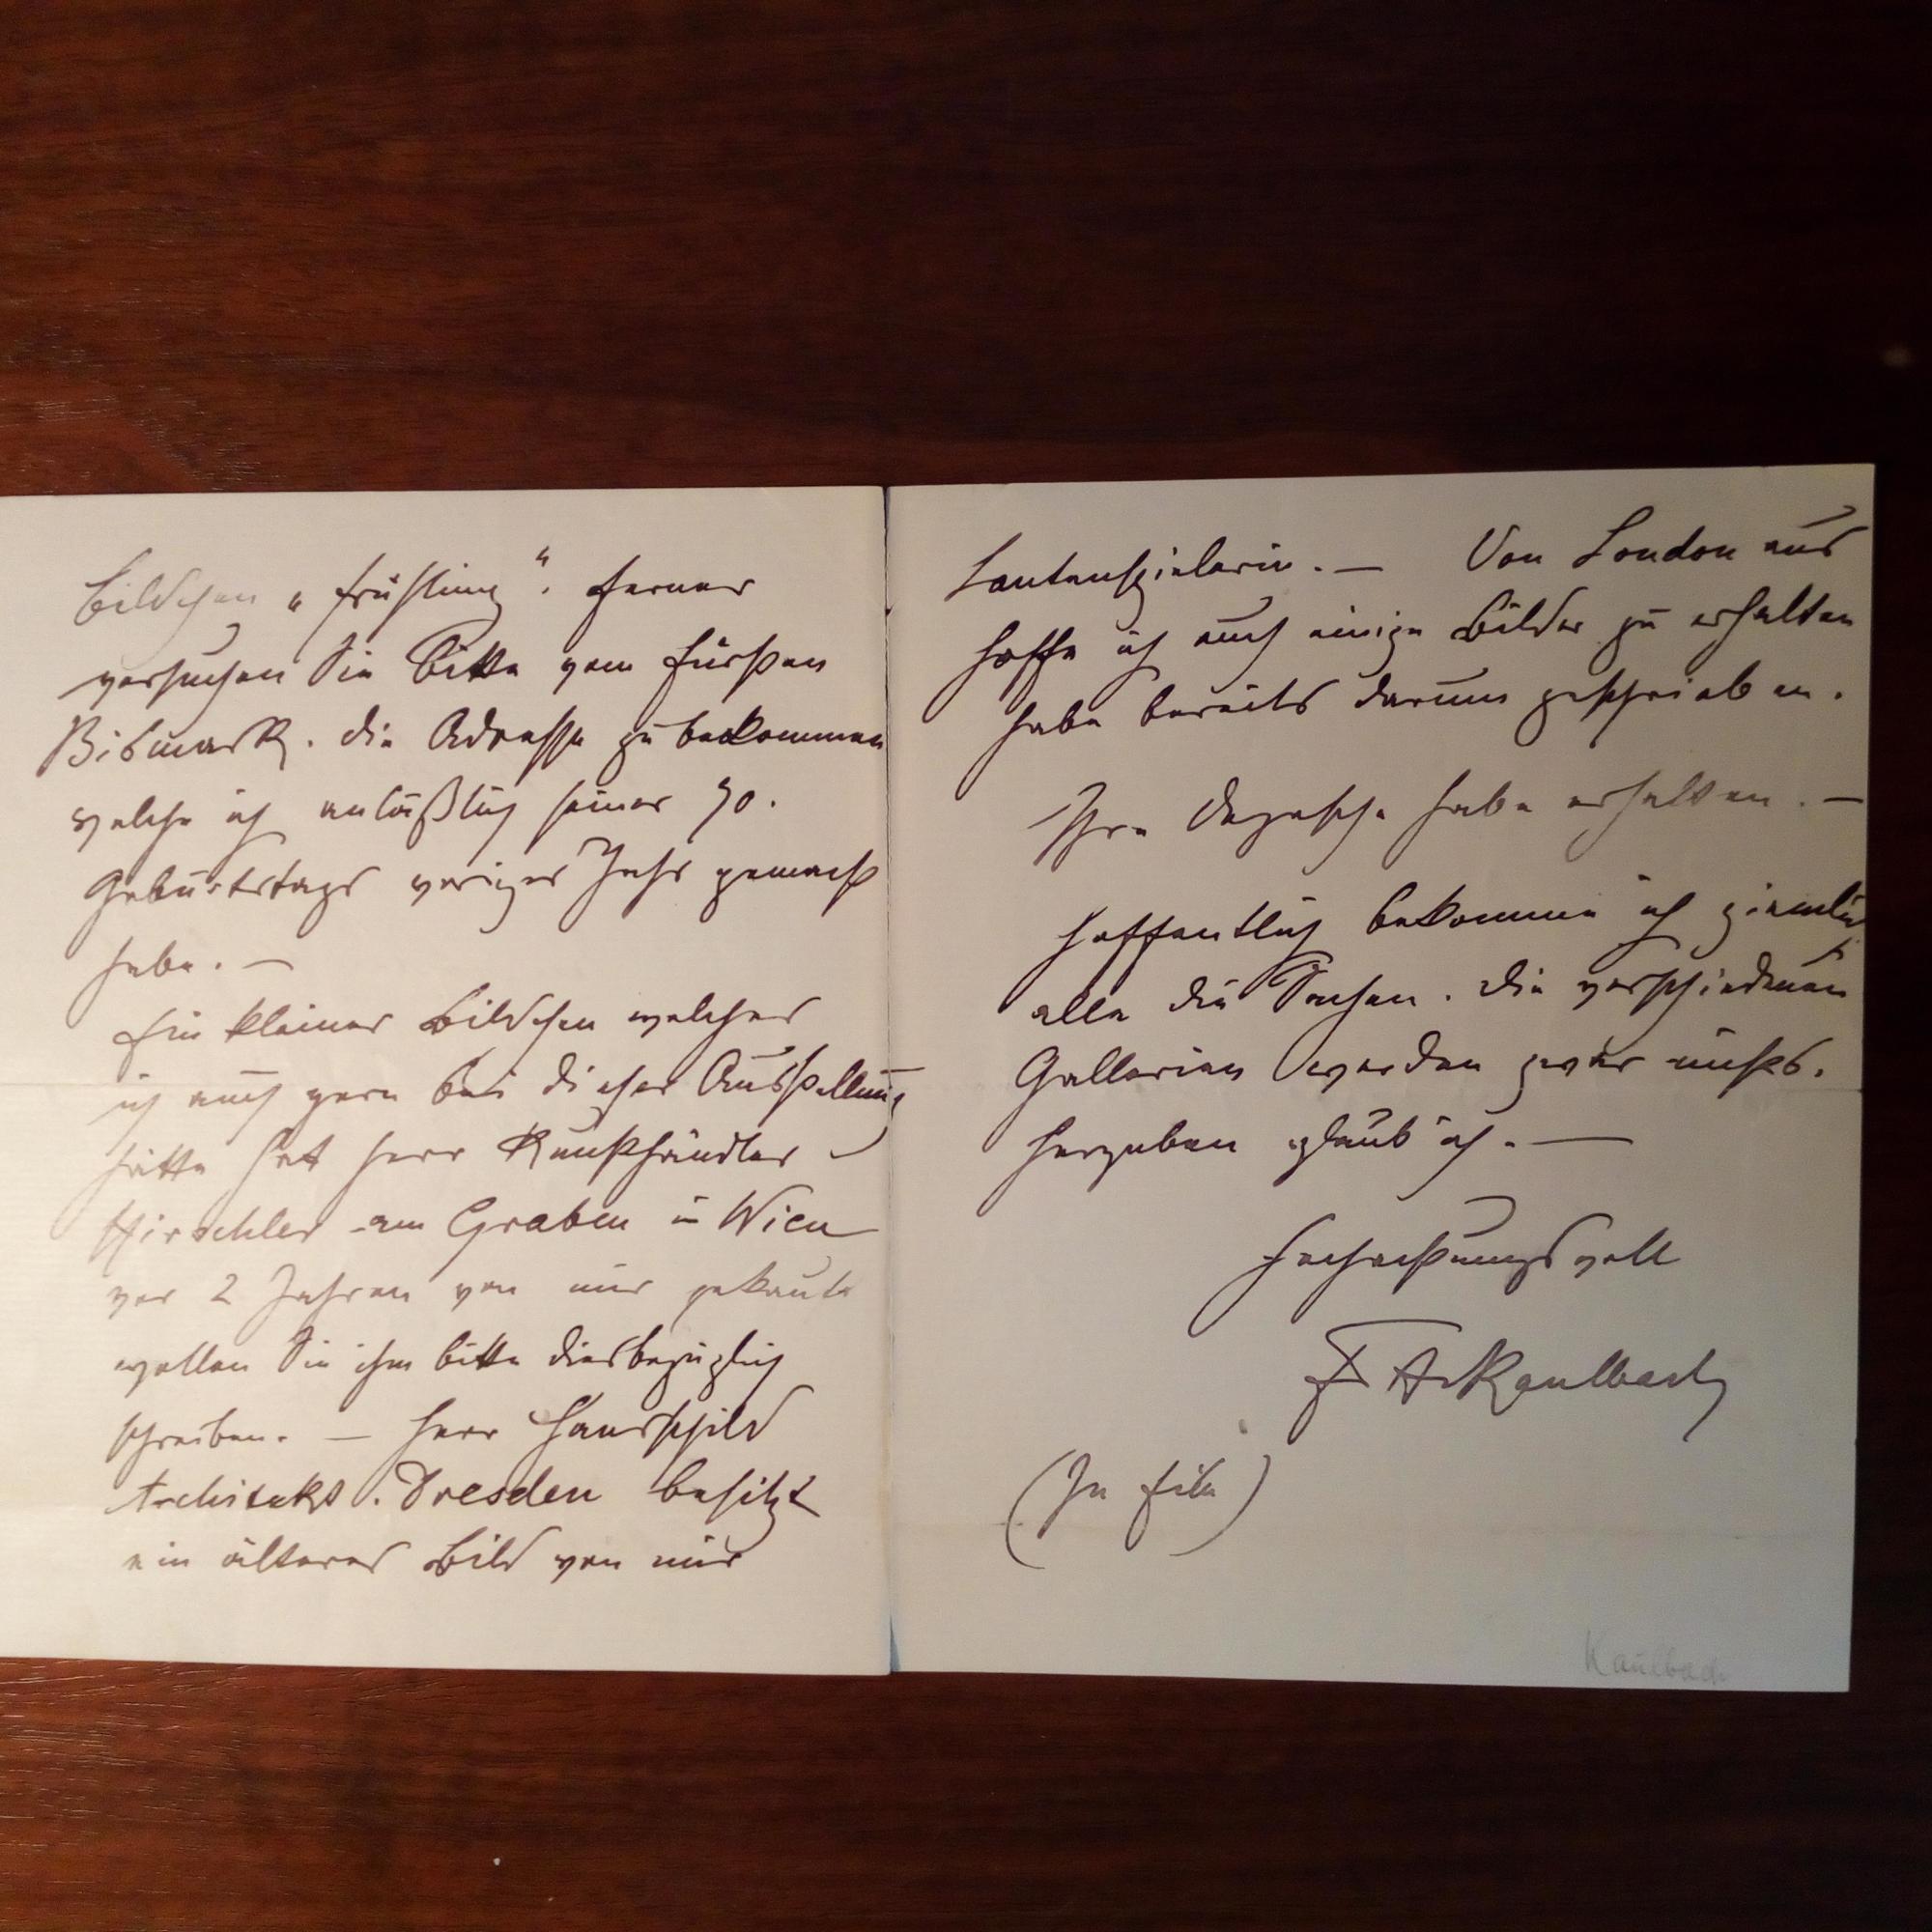 Bildchen „Frühling". Ferner
versuchen Sie bitte vom Fürsten
Bismark. die Adresse zu bekommen
welche ich anläßlich seines 70.
Geburtstags voriges Jahr gemacht
habe. —
Ein kleines Bildchen welches
ich auch gern bei dieser Ausstellung
hätte hat Herr Kunsthändler
Hirschler am Graben in Wien
vor 2 Jahren von mir gekauft
wollen Sie ihm bitte diesbezüglich
schreiben. — Herr Hauschild
Architekt. Dresden besitzt
ein älteres Bild von mir
Lautenspielerin. — Von London aus
hoffe ich auch einige Bilder zu erhalten
habe bereits darum geschrieben.
Ihre Depesche habe erhalten. —
Hoffentlich bekomme ich ziemlich
alle die Sachen. Die verschiedenen
Gallerien werden zwar nichts.
hergeben glaub ich. —
Hochachtungsvoll
F A Kaulbach
(In Eile)
Kaulbach